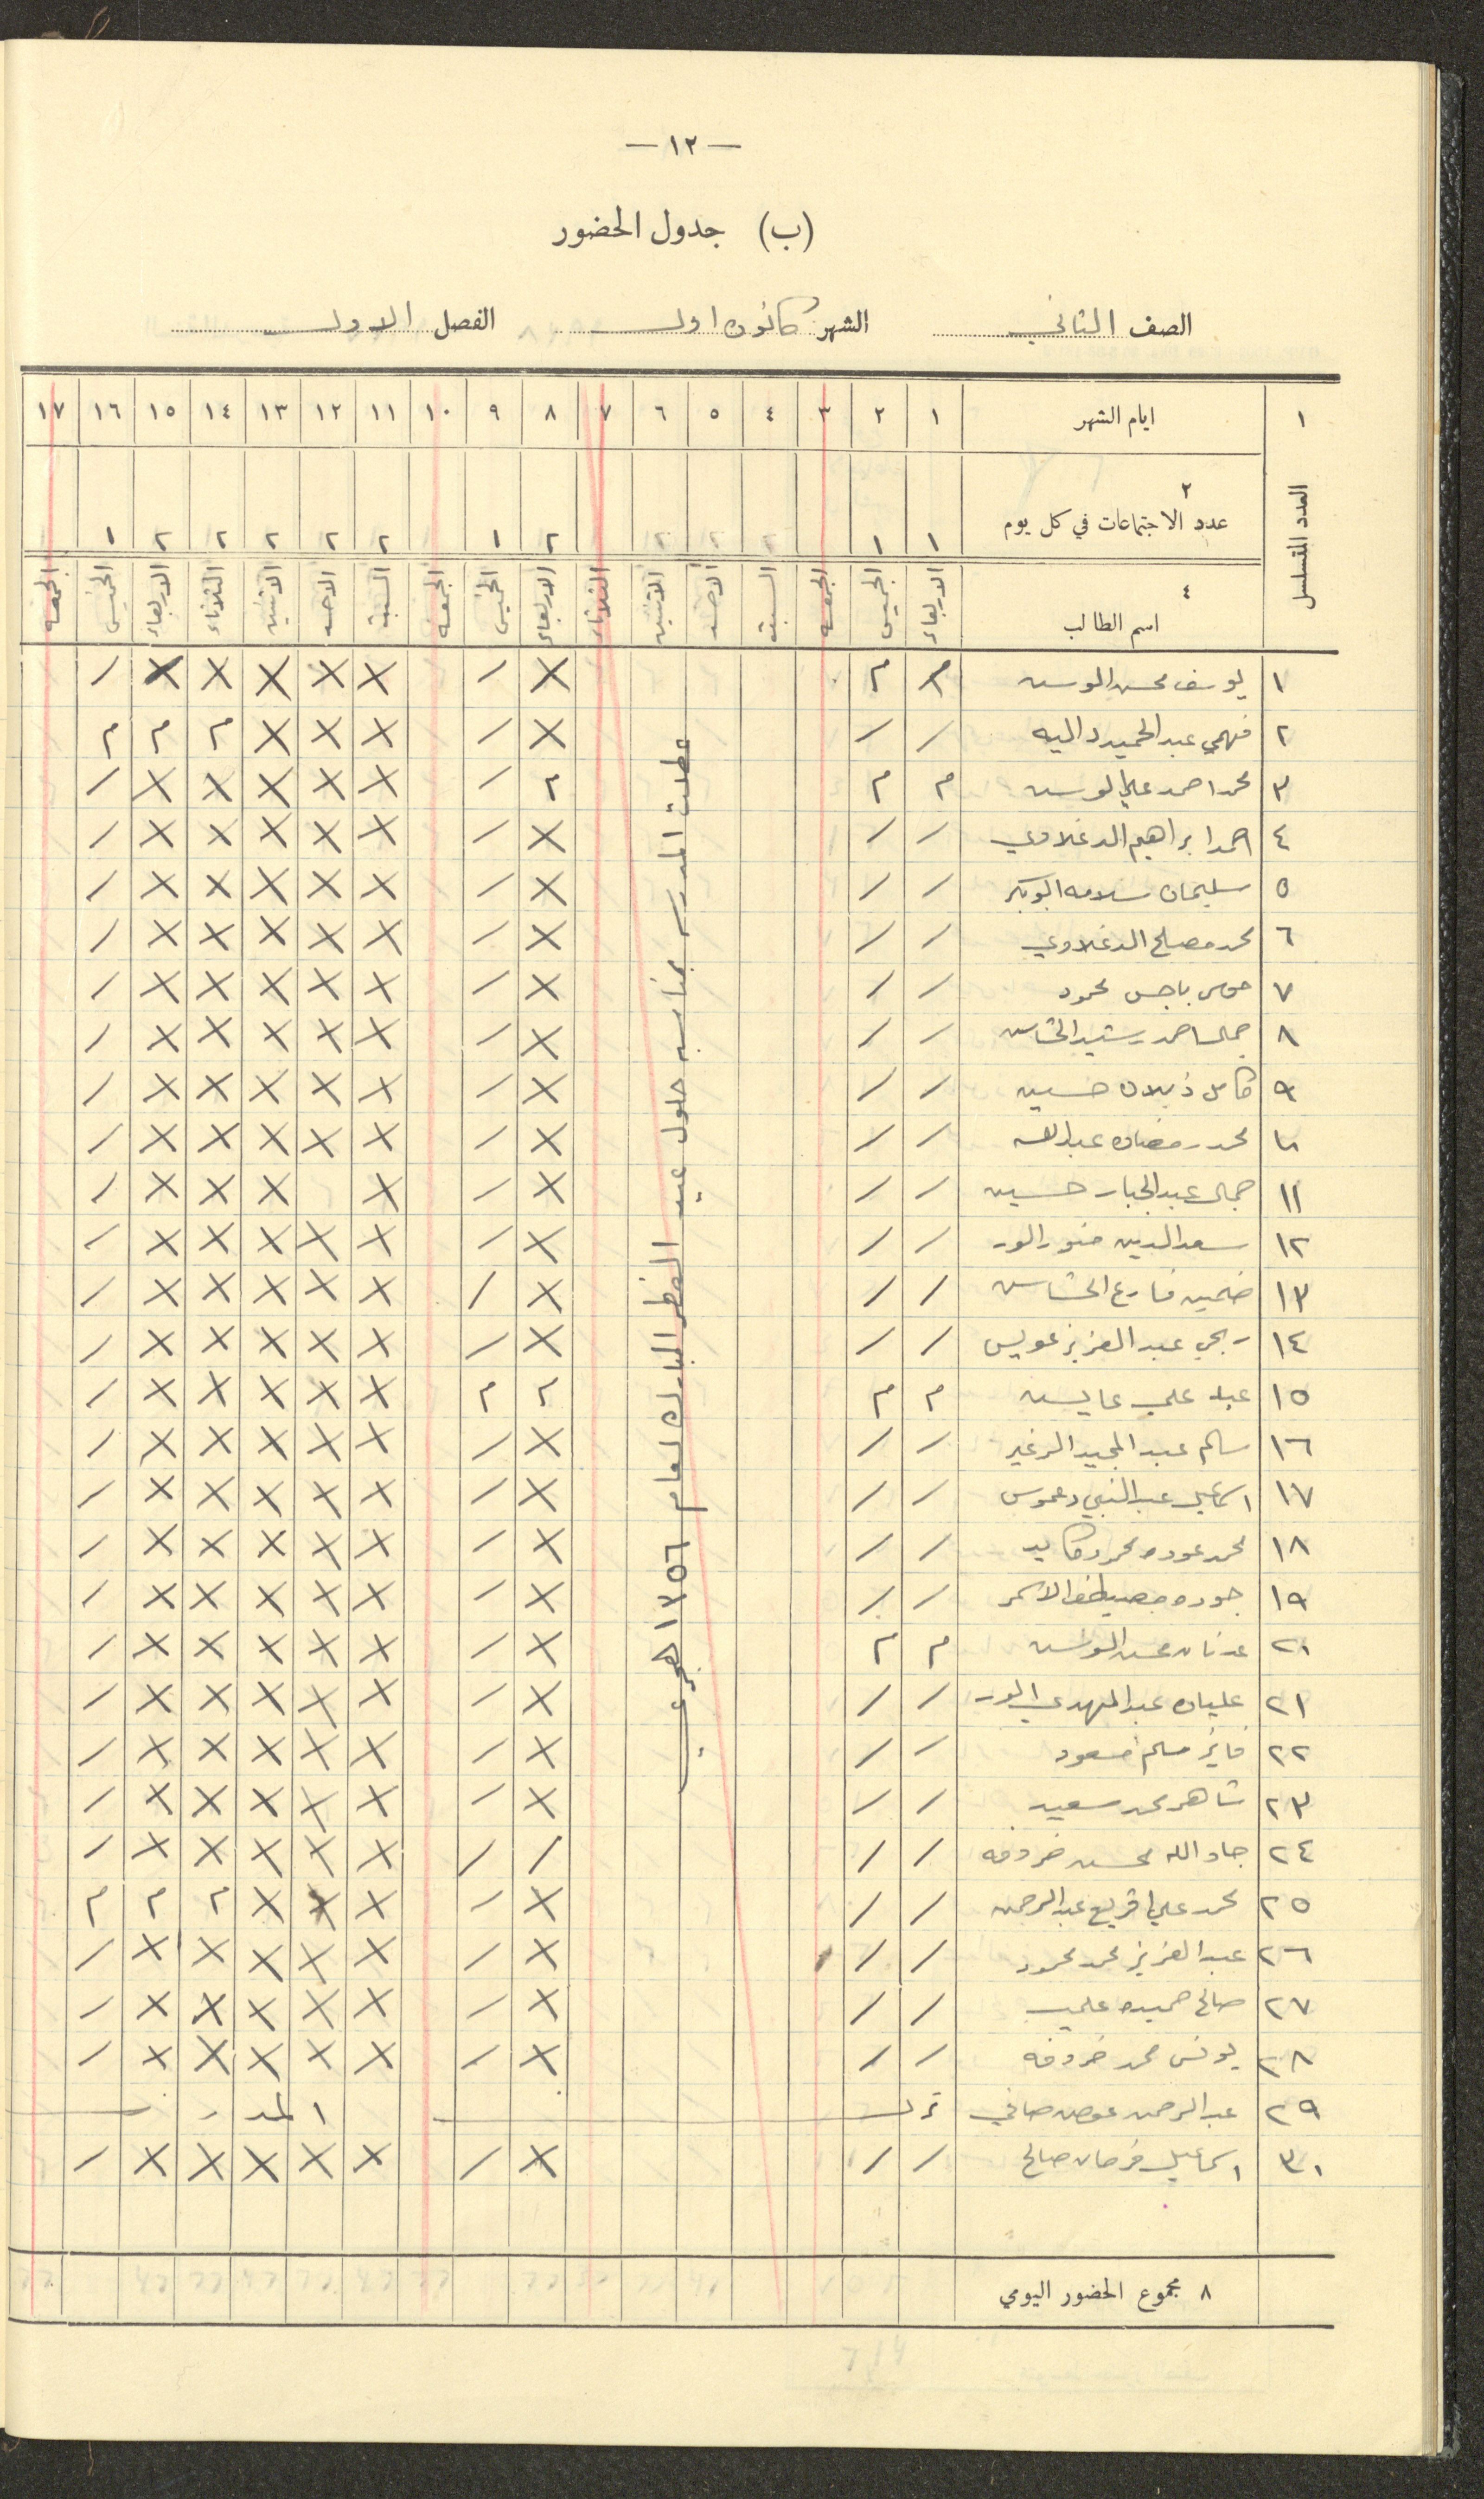 — ١٢ —
(ب) جدول الحضور
الصف الثاني الشهر كانون اول الفصل الاول
١ ايام الشهر ١ ٢ ٣ ٤ ٥ ٦ ٧ ٨ ٩ ١٠ ١١ ١٢ ١٣ ١٤ ١٥ ١٦ ١٧
العدد المتسلسل
٢
عدد الاجتماعات في كل يوم ١ ١ ٢ ١ ٢ ٢ ٢ ٢ ٢ ١
٤
اسم الطالب الاربعاء الخميس الجمعه السبت الاحد الاثنين الثلاثاء الاربعاء الخميس الجمعه السبت الاحد الاثنين الثلاثاء الاربعاء الخميس الجمعه
١ يوسف محسن م م X / X X X X X /
٢ فهمي عبد الحميد / / X / X X X م م م
٣ محمد احمد علي م م م / X X X X X /
٤ احمد ابراهيم الدغلاوي / / X / X X X X X /
٥ سليمان سلامه ابو بكر / / X / X X X X X /
٦ محمد مصلح الدغلاوي / / X / X X X X X /
٧ باجس محمود / / X / X X X X X /
٨ جمال احمد رشيد / / X / X X X X X /
٩ كامل ذيبان حسين / / X / X X X X X /
١٠ محمد رمضان عبدالله / / X / X X X X X /
١١ جمال عبد الجبار حسين / / X / X X X X /
١٢ سعد الدين منور الور / / X / X X X X X /
١٣ فارع / / X / X X X X X /
١٤ ربحي عبد العزيز عويس / / X / X X X X X /
١٥ علي م م م م X X X X X /
١٦ سالم عبد المجيد الزغير / / X / X X X X X /
١٧ اسماعيل عبد النبي دعموس / / X / X X X X X /
١٨ محمد عوده محمود كايد / / X / X X X X X /
١٩ جوده مصطفى الاسمر / / X / X X X X X /
٢٠ عدنان محسن م م X / X X X X X /
٢١ عليان عبد المهدي الور / / X / X X X X X /
٢٢ فايز مسلم مسعود / / X / X X X X X /
٢٣ شاهر محمد سعيد / / X / X X X X X /
٢٤ جاد الله محسن خروفه / / / / X X X X X /
٢٥ محمد علي اقريع عبد الرحمن / / X / X X X م م م
٢٦ عبد العزيز محمد محمود / / X / X X X X X /
٢٧ صالح حميده علي / / X / X X X X X /
٢٨ يونس محمد خروفه / / X / X X X X X /
٢٩ عبد الرحمن عوض صافي ترك المدر
٣٠ اسماعيل فرحان صالح / / X / X X X X X /
عطلت المدرسه بمناسبه حلول عيد الفطر المبارك لعام ١٣٥٦ هجري
٨ مجموع الحضور اليومي